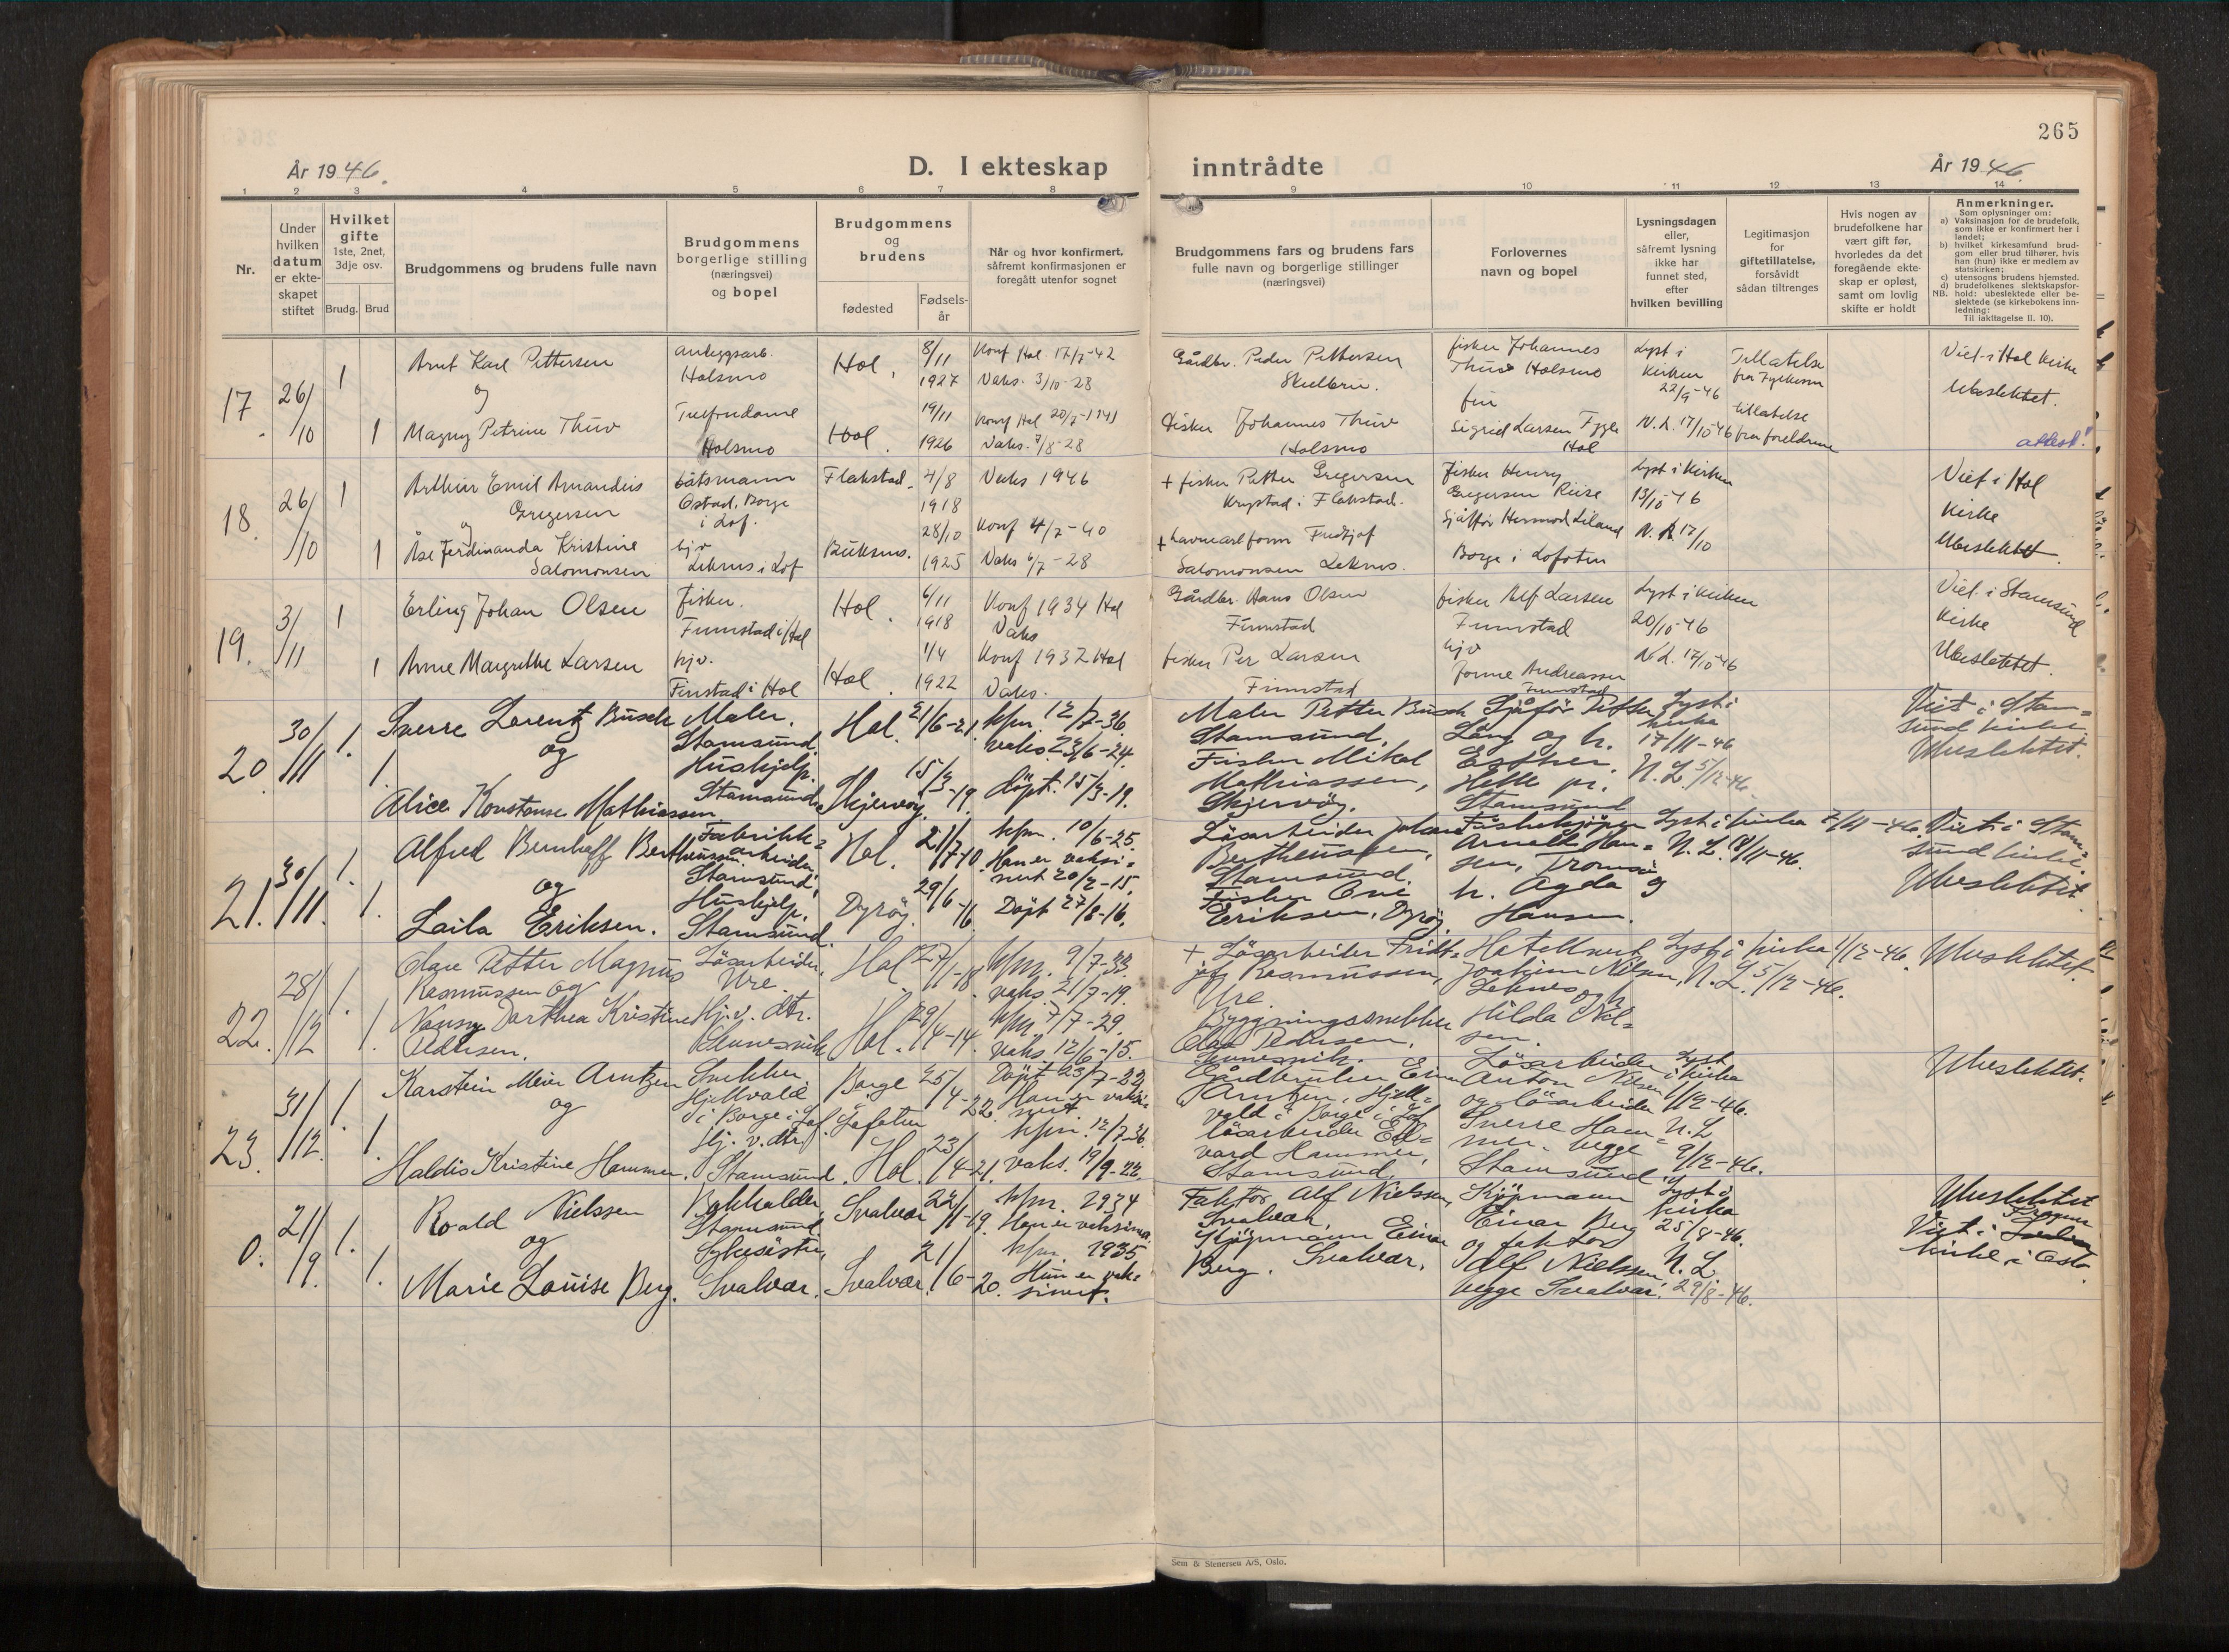 265
År 1946.
D. I ekteskap inntrådte
År 1946.
1 2 3 4 5 6 7 8 9 10 11 12 13 14
Nr.
Under hvilken datum er ekteskapet stiftet
Hvilket gifte
1ste, 2net, 3dje osv.
Brudg. Brud
Brudgommens og brudens fulle navn
Brudgommens borgerlige stilling (næringsvei) og bopel
Brudgommens og brudens
fødested
Fødselsår
Når og hvor konfirmert, såfremt konfirmasjonen er foregått utenfor sognet
Brudgommens fars og brudens fars fulle navn og borgerlige stillinger (næringsvei)
Forlovernes navn og bopel
Lysningsdagen eller, såfremt lysning ikke har funnet sted, efter hvilken bevilling
Legitimasjon for giftetillatelse, forsåvidt sådan tiltrenges
Hvis nogen av brudefolkene har vært gift før, hvorledes da det foregående ekteskap er opløst, samt om lovlig skifte er holdt
Anmerkninger.
Som oplysninger om:
a) Vaksinasjon for de brudefolk, som ikke er konfirmert her i landet;
b) hvilket kirkesamfund brudgom eller brud tilhører, hvis han (hun) ikke er medlem av statskirken;
c) utensogns brudens hjemsted.
d) brudefolkenes slektskapsforhold: ubeslektede eller beslektede (se kirkebokens innledning:
NB.
Til iakttagelse II. 10).
17. 26/10 1
Arnt Karl Pettersen
og
1 Magny Petrine Thuv
Anleggsarb.
Holsmo
Holsmo
Hol. 8/11 1927
Konf Hol 17/7-42
Vaks. 3/10-28
Hol. 19/11 1926
Konf Hol 20/7-1941
Vaks. 7/8-28
Gårdbr. Peder Pettersen
Fisker Johannes Thuv
Holsmo
fisker Johannes
Thuv Holsmo
fru
Sigrid Larsen Fygle
Hol
Lyst i
Kirken
22/9-46
N.L. 17/10-46
Tillatelse
fra Fylkesm
tillatelse
fra foreldrene
Viet i Hol kirke
Ubeslektet.
attest!
18. 26/10 1
Arthur Emil Amandus
Gregersen
og
1 Åse Ferdinanda Kristine
Salomonsen
båtsmann
Ostad, Borge
i Lof.
hjv
Leknes i Lof
Flakstad. 4/8 1918
Vaks 1946
Buksnes. 28/10 1925
Konf 4/7-40
Vaks 6/7-28
+ fisker Petter Gregersen
Krystad i Flakstad.
+ havnearbform Fridtjof
Salomonsen Leknes.
Fisker Henry
Gregersen Riise
Sjåfør Hermod Liland
Borge i Lofoten
Lyst i kirken
13/10-46
N.L. 17/10
Viet i Hol
kirke
Ubeslektet.
19. 3/11 1
Erling Johan Olsen
1 Anne Margrethe Larsen
Fisker.
Finnstad i Hol
hjv.
Finstad i Hol
Hol. 6/11 1918
Konf 1934 Hol
Vaks
Hol. 1/4 1922
Konf 1937 Hol
Vaks.
Gårdbr. Hans Olsen
Finnstad
fisker Per Larsen
Finnstad
fisker Alf Larsen
Finnstad
hjv
Andreassen
Finnstad
Lyst i kirken
20/10-46
N.L. 17/10-46
Viet i Stamsund
kirke
Ubeslektet.
20. 30/11 1.
Sverre Lorentz Busch
og
1.
Alice Konstanse Mathiassen
Maler.
Stamsund.
Hushjelp.
Stamsund.
Hol. 21/6-21.
kfm. 12/7-36.
vaks. 23/6-24.
Skjervøy. 15/3-19.
döpt. 15/3-19.
Maler Petter Busch
Stamsund.
Fisker Mikal
Mathiassen,
Skjervöy.
Sjåför Petter
Lång og h.
Esther.
Stamsund
Lyst i
kirka
17/11-46
N.L. 5/12-46.
Viet i Stam=
sund kirke.
Ubeslektet.
21. 30/11. 1.
Alfred Bernhoff Bertheussen.
og
1.
Laila Eriksen.
Fabrikk=
arbeider
Stamsund.
Hushjelp.
Stamsund.
Hol. 21/7-10.
kfm. 10/6-25.
Han er vaksi=
nert 20/2-15.
Dyröy. 29/6-16.
Döpt 27/8-16.
Lösarbeider Johan
Bertheussen,
Stamsund.
Fisker
Eriksen, Dyröy.
Fiskekjöper
Arnold Han=
sen, Tromsö
h. Agda
Hansen.
Lyst i kirka
N.L. 18/11-46.
Viet i Stam=
sund kirke.
Ubeslektet.
22. 28/12 1.
Olav Petter Magnus
Rasmussen og
1. Nanny Dorthea Kristine
Pedersen.
Lösarbeider,
Ure.
Hj.v. dtr.
Sennesvik
Hol. 27/1-18.
kfm. 9/7-33.
vaks. 21/7-19.
Hol. 29/4-14.
kfm. 7/7-29.
vaks. 12/6-15.
+. Lösarbeider Fridt=
jof Rasmussen,
Ure.
Byggningssnekker
Olav Pedersen,
Sennesvik.
Hotellvert
Joakim Nilsen,
Leknes og h.
Hilda Nil=
sen.
Lyst i kirka 1/12-46.
N.L. 5/12-46.
Ubeslektet.
23. 31/12. 1.
Karstein Meier Arntzen
og
1.
Haldis Kristine Hammer.
Snekker
Hjellvold
i Borge i Lof.
Hj.v. dtr.
Stamsund.
Borge i Lofoten 25/4-22.
Döpt 23/7-22
Han er vaksi=
nert.
Hol. 23/4-21.
kfm. 12/7-36
vaks. 19/9-22.
Gårdbruker Einar
Arntzen, Hjell=
vold i Borge i Lof
lösarbeider Ed=
vard Hammer,
Stamsund.
Lösarbeider
Anton Nilsen
og lösarbeider
Sverre Ham=
mer. begge
Stamsund.
Lyst
i kirka
1/12-46.
N.L.
9/12-46.
Ubeslektet.
0. 21/9. 1.
Roald Nielssen
og
1. Marie Louise Berg.
Bokholder
Stamsund
Sykesöster,
Svolvær.
Svolvær 22/11-19.
kfm. 1934
Han er vaksinert.
Svolvær. 21/6-20.
kfm. 1935
Hun er vak=
sinert.
Faktor Alf Nielssen,
Svolvær.
Kjöpmann Einar
Berg. Svolvær.
Kjöpmann
Einar Berg
og faktor
Alf Nielssen,
begge Svolvær.
Lyst i
kirka
25/8-46.
N.L.
29/8-46.
Ubeslektet
Viet i
kirke i Oslo.
Sem & Stenersen A/S, Oslo.